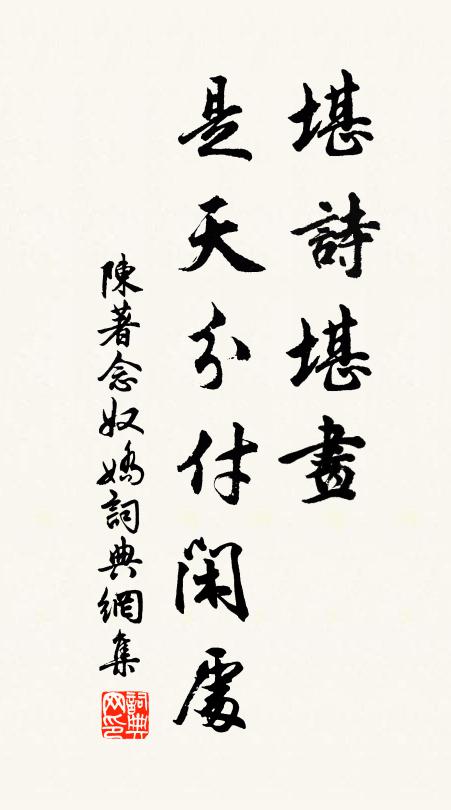 堪詩堪畫
是天分付閑處
陳著念奴嬌詞典網集
詞典网印